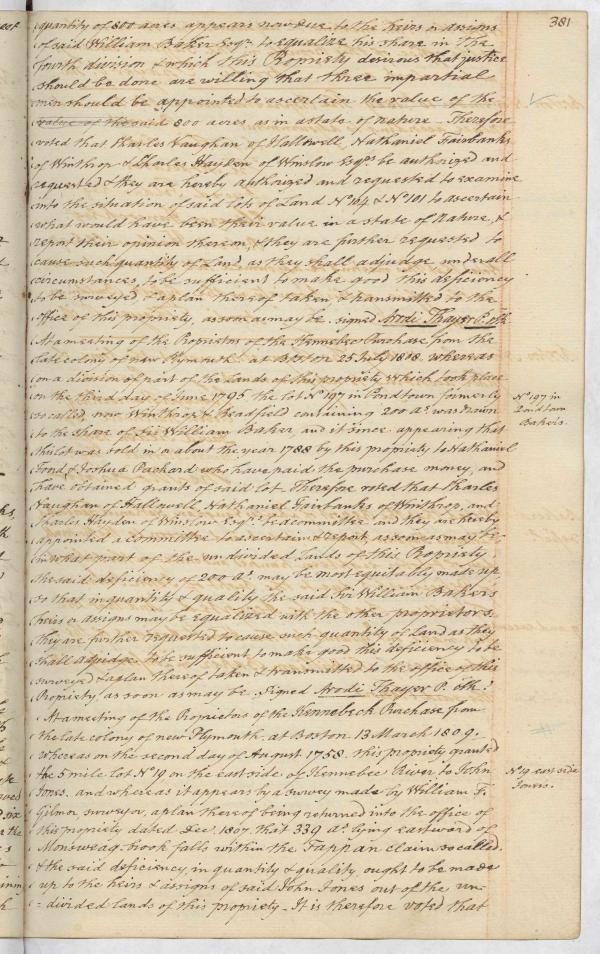 381
quantity of 800 acres appears now due to the heirs or assigns
of said William Baker Esqr. to equalize his share in The
fourth division & which this Propriety desirous that justice
should be done are willing that three impartial
men should be appointed to ascertain the value of the
value of the said 800 acres as in a state of nature - Therefore
voted that Charles Vaughan of Hallowell, Nathaniel Fairbanks
of Winthrop & Charles Hayden of Winslow Esqrs. be authorized and
requested & they are hereby authorized and requested to examine
into the situation of said lots of Land No. 104 & No. 101 to ascertain
what would have been their value in a state of Nature, &
report their opinion thereon, & they are further requested to
cause such quantity of Land as they shall adjudge under all
circumstances, to be sufficient to make good this deficiency
to be surveyed & a plan thereof taken & transmitted to the
office of this propriety, as soon as may be. signed Arodi Thayer P. Clk
At a meeting of the Proprietors of the Kennebec Purchase from the
late colony of new Plymouth at Boston 25 July 1808. whereas
on a division of part of the lands of this propriety which took place
on the third day of June 1795 the lot No. 197 in Pondtown formerly
so called, now Winthrop & Readfield containing 200 as. was drawn
to the share of Sir William Baker and it since appearing that
this lot was sold in or about the year 1788 by this propriety to Nathaniel
Fond & Joshua Packard who have paid the purchase money, and
have obtained grants of said lot. Therefore voted that Charles
Vaughan of Hallowell, Nathaniel Fairbanks of Winthrop, and
Charles Hayden of Winslow Esqrs. be a committee and they are hereby
appointed a Committee to ascertain & report, as soon as may be,
in what part of the undivided Lands of this Propriety
the said deficiency of 200 as. may be most equitably made up
so that in quantity & quality the said Sir William Bakers
heirs or assigns may be equalized with the other proprietors.
they are further requested to cause such quantity of Land as they
shall adjudge to be sufficient to make good this deficiency to be
surveyed & a plan thereof taken & transmitted to the office of this
Propriety as soon as may be. Signed Arodi Thayer P. Clk.
At a meeting of the Proprietors of the Kennebeck Purchase from
the late colony of new Plymouth, at Boston 13 March 1809.
Whereas on the second day of August 1758 this propriety granted
the 5 mile lot No. 19 on the east side of Kennebec River to John
Jones. and whereas it appears by a survey made by William F.
Gilmor, surveyor, a plan thereof being returned into the office of
this propriety dated Decr. 1807. that 339 as. lying eastward of
Monsweag brook falls within the Tappan claim so called.
& the said deficiency in quantity & quality ought to be made
up to the heirs & assigns of said John Jones out of the un-
=divided lands of this propriety - It is therefore voted that
No. 197 in
Pondtown
Bakers.
No. 19 east side
Jones.